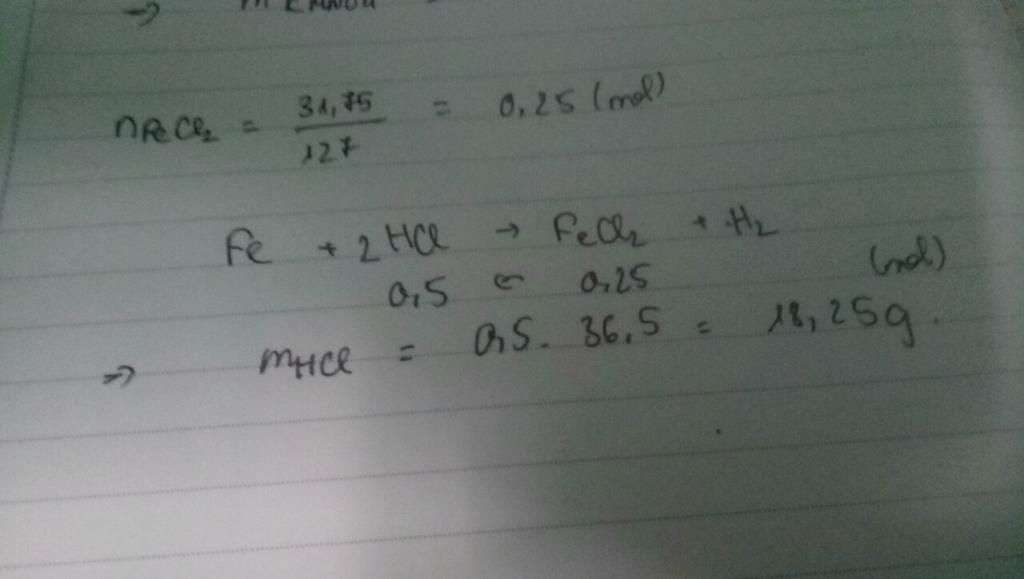 →
nFeCl₂ = 31,75 / 127 = 0,25 (mol)
Fe + 2HCl → FeCl₂ + H₂
0,5 ← 0,25 (mol)
⇒ mHCl = 0,5 . 36,5 = 18,25g.